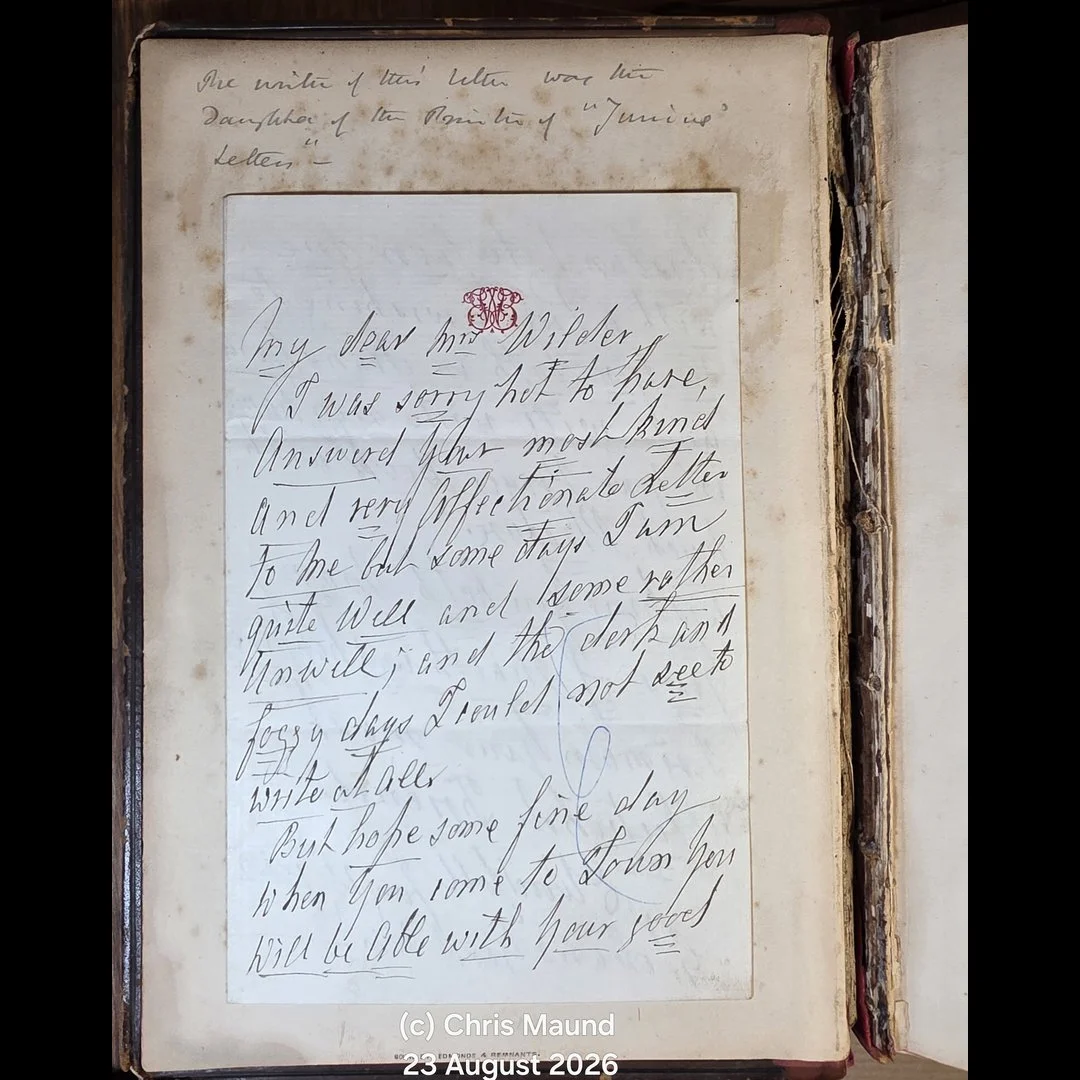 The writer of this letter was the
Daughter of the Printer of "Junius'
Letters" -
My dear Mrs Wilder,
I was sorry not to have,
Answerd Your most kind
And very Affectionate Letter
To Me but some days I am
quite Well and some rather
Unwell; and the dark and
foggy days I could not see to
write at all.
But hope some fine day
when You come to Town You
Will be Able with Your good
EDMONDS & REMNANTS
(c) Chris Maund
23 August 2026